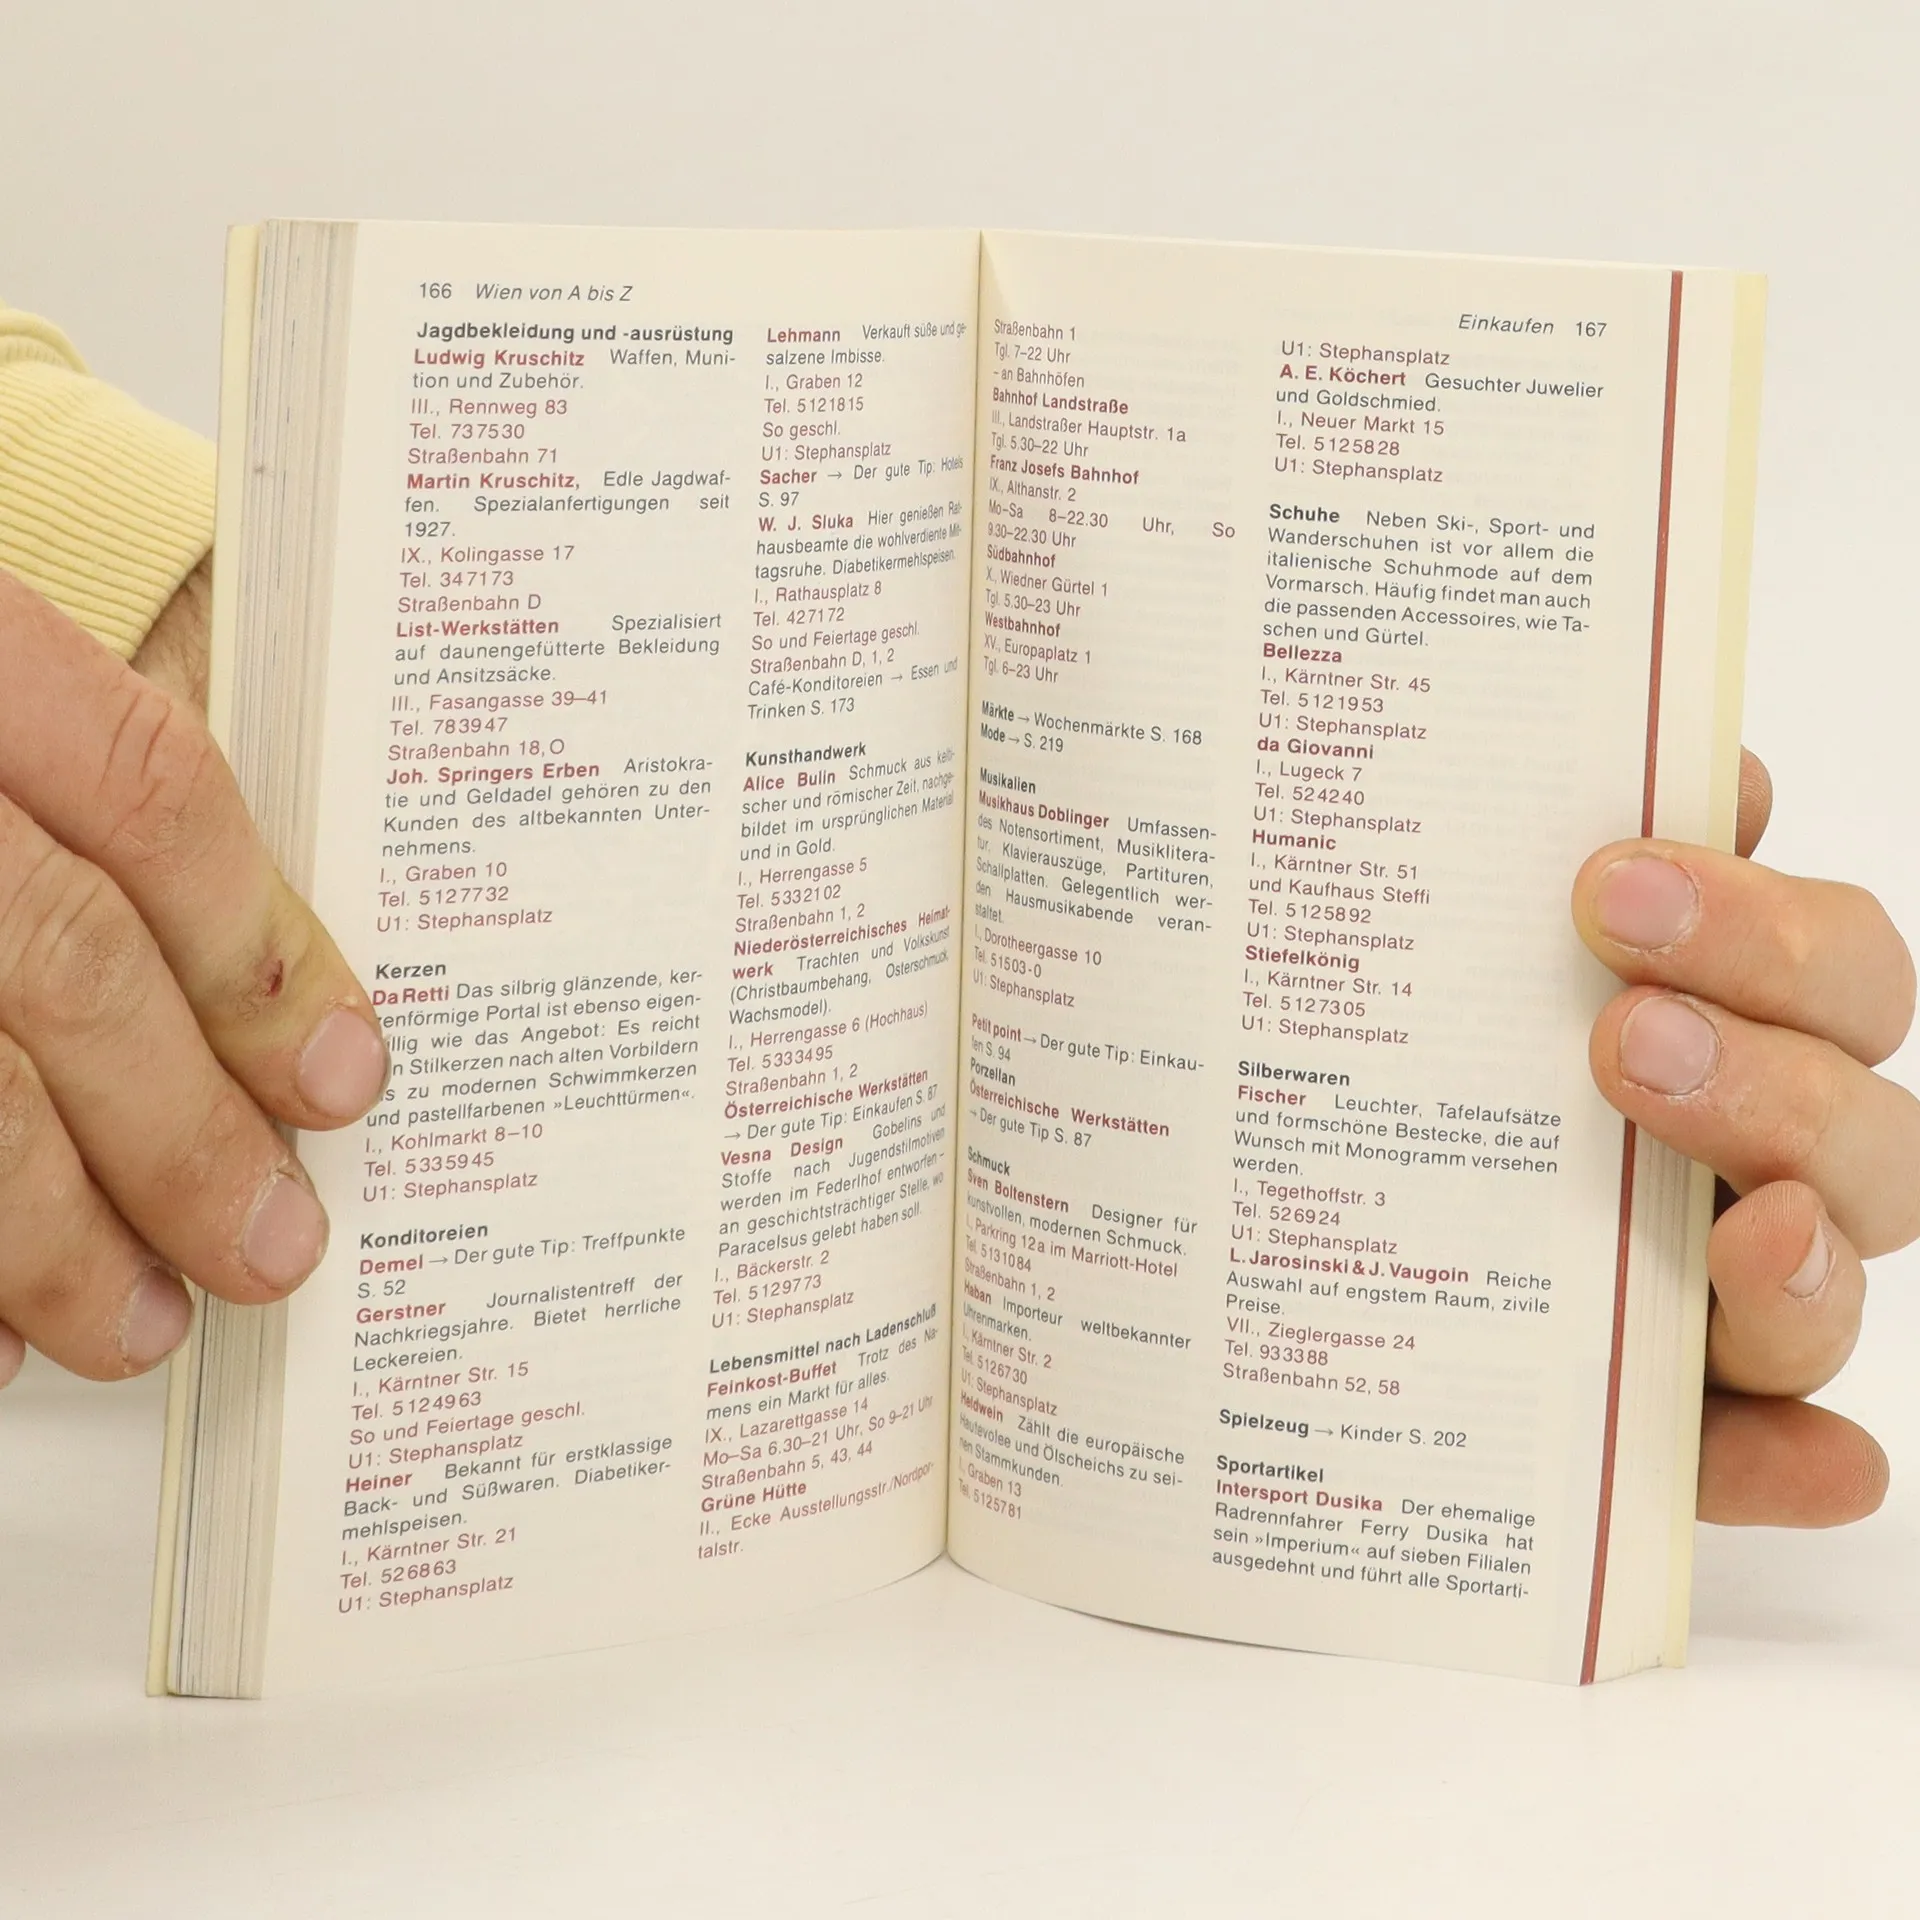 166 Wien von A bis Z
Jagdbekleidung und -ausrüstung
Ludwig Kruschitz Waffen, Muni-
tion und Zubehör.
III., Rennweg 83
Tel. 737530
Straßenbahn 71
Martin Kruschitz, Edle Jagdwaf-
fen. Spezialanfertigungen seit
1927.
IX., Kolingasse 17
Tel. 347173
Straßenbahn D
List-Werkstätten Spezialisiert
auf daunengefütterte Bekleidung
und Ansitzsäcke.
III., Fasangasse 39–41
Tel. 783947
Straßenbahn 18, O
Joh. Springers Erben Aristokra-
tie und Geldadel gehören zu den
Kunden des altbekannten Unter-
nehmens.
I., Graben 10
Tel. 5127732
U1: Stephansplatz
Kerzen
Da Retti Das silbrig glänzende, ker-
zenförmige Portal ist ebenso eigen-
illig wie das Angebot: Es reicht
n Stilkerzen nach alten Vorbildern
s zu modernen Schwimmkerzen
und pastellfarbenen »Leuchttürmen«.
I., Kohlmarkt 8–10
Tel. 5335945
U1: Stephansplatz
Konditoreien
Demel → Der gute Tip: Treffpunkte
S. 52
Gerstner Journalistentreff der
Nachkriegsjahre. Bietet herrliche
Leckereien.
I., Kärntner Str. 15
Tel. 5124963
So und Feiertage geschl.
U1: Stephansplatz
Heiner Bekannt für erstklassige
Back- und Süßwaren. Diabetiker-
mehlspeisen.
I., Kärntner Str. 21
Tel. 526863
U1: Stephansplatz
Lehmann Verkauft süße und ge-
salzene Imbisse.
I., Graben 12
Tel. 5121815
So geschl.
U1: Stephansplatz
Sacher → Der gute Tip: Hotels
S. 97
W. J. Sluka Hier genießen Rat-
hausbeamte die wohlverdiente Mit-
tagsruhe. Diabetikermehlspeisen.
I., Rathausplatz 8
Tel. 427172
So und Feiertage geschl.
Straßenbahn D, 1, 2
Café-Konditoreien → Essen und
Trinken S. 173
Kunsthandwerk
Alice Bulin Schmuck aus kelti-
scher und römischer Zeit, nachge-
bildet im ursprünglichen Material
und in Gold.
I., Herrengasse 5
Tel. 5332102
Straßenbahn 1, 2
Niederösterreichisches Heimat-
werk Trachten und Volkskunst
(Christbaumbehang, Osterschmuck,
Wachsmodel).
I., Herrengasse 6 (Hochhaus)
Tel. 5333495
Straßenbahn 1, 2
Österreichische Werkstätten
→ Der gute Tip: Einkaufen S. 87
Vesna Design Gobelins und
Stoffe nach Jugendstilmotiven
werden im Federlhof entworfen –
an geschichtsträchtiger Stelle, wo
Paracelsus gelebt haben soll.
I., Bäckerstr. 2
Tel. 5129773
U1: Stephansplatz
Lebensmittel nach Ladenschluß
Feinkost-Buffet Trotz des Na-
mens ein Markt für alles.
IX., Lazarettgasse 14
Mo–Sa 6.30–21 Uhr, So 9–21 Uhr
Straßenbahn 5, 43, 44
Grüne Hütte
II., Ecke Ausstellungsstr./Nordpor-
talstr.
Einkaufen 167
Straßenbahn 1
Tgl. 7–22 Uhr
- an Bahnhöfen
Bahnhof Landstraße
III., Landstraßer Hauptstr. 1a
Tgl. 5.30–22 Uhr
Franz Josefs Bahnhof
IX., Althanstr. 2
Mo-Sa 8–22.30 Uhr, So
9.30–22.30 Uhr
Südbahnhof
X., Wiedner Gürtel 1
Tgl. 5.30–23 Uhr
Westbahnhof
XV., Europaplatz 1
Tgl. 6–23 Uhr
Märkte → Wochenmärkte S. 168
Mode → S. 219
Musikalien
Musikhaus Doblinger Umfassen-
des Notensortiment, Musiklitera-
tur. Klavierauszüge, Partituren,
Schallplatten. Gelegentlich wer-
den Hausmusikabende veran-
staltet.
I., Dorotheergasse 10
Tel. 51503-0
U1: Stephansplatz
Petit point → Der gute Tip: Einkau-
fen S. 94
Porzellan
Österreichische Werkstätten
→ Der gute Tip S. 87
Schmuck
Sven Boltenstern Designer für
kunstvollen, modernen Schmuck.
I., Parkring 12a im Marriott-Hotel
Tel. 5131084
Straßenbahn 1, 2
Haban Importeur weltbekannter
Uhrenmarken.
I., Kärntner Str. 2
Tel. 5126730
U1: Stephansplatz
Heldwein Zählt die europäische
Hautevolee und Ölscheichs zu sei-
nen Stammkunden.
I., Graben 13
Tel. 5125781
U1: Stephansplatz
A. E. Köchert Gesuchter Juwelier
und Goldschmied.
I., Neuer Markt 15
Tel. 5125828
U1: Stephansplatz
Schuhe Neben Ski-, Sport- und
Wanderschuhen ist vor allem die
italienische Schuhmode auf dem
Vormarsch. Häufig findet man auch
die passenden Accessoires, wie Ta-
schen und Gürtel.
Bellezza
I., Kärntner Str. 45
Tel. 5121953
U1: Stephansplatz
da Giovanni
I., Lugeck 7
Tel. 524240
U1: Stephansplatz
Humanic
I., Kärntner Str. 51
und Kaufhaus Steffi
Tel. 5125892
U1: Stephansplatz
Stiefelkönig
I., Kärntner Str. 14
Tel. 5127305
U1: Stephansplatz
Silberwaren
Fischer Leuchter, Tafelaufsätze
und formschöne Bestecke, die auf
Wunsch mit Monogramm versehen
werden.
I., Tegethoffstr. 3
Tel. 526924
U1: Stephansplatz
L. Jarosinski & J. Vaugoin Reiche
Auswahl auf engstem Raum, zivile
Preise.
VII., Zieglergasse 24
Tel. 933388
Straßenbahn 52, 58
Spielzeug → Kinder S. 202
Sportartikel
Intersport Dusika Der ehemalige
Radrennfahrer Ferry Dusika hat
sein »Imperium« auf sieben Filialen
ausgedehnt und führt alle Sportarti-